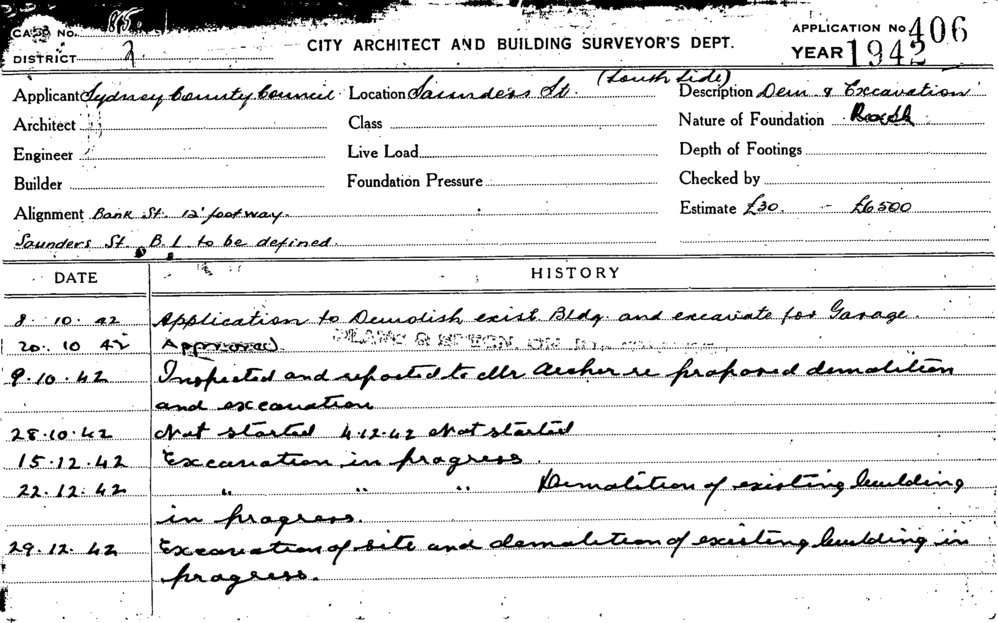 CARD No. 85.
DISTRICT 2
CITY ARCHITECT AND BUILDING SURVEYOR'S DEPT.
APPLICATION No 406
YEAR 1942
Applicant Sydney County Council Location Saunders St. (South Side) Description Dem & Excavation
Architect Class Nature of Foundation Rock
Engineer Live Load Depth of Footings
Builder Foundation Pressure Checked by
Alignment Bank St. 12' footway. Estimate £30. - £6500
Saunders St. B.L. to be defined.
DATE HISTORY
8. 10. 42 Application to Demolish exist Bldg. and excavate for Garage.
20. 10 42 Approved.
9.10.42 Inspected and reported to Mr Archer re proposed demolition
and excavation
28.10.42 Not started 4.12.42 Not started
15.12.42 Excavation in progress
22.12.42 " " " Demolition of existing building
in progress.
29.12.42 Excavation of site and demolition of existing building in
progress.